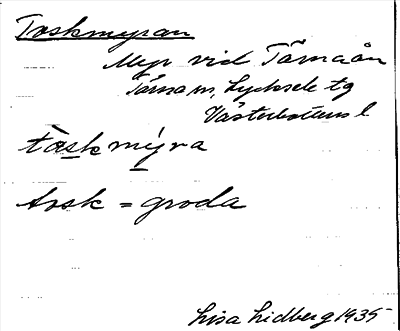 Toskmyran
Myr vid Tärnaån
Tärna sn, Lycksele tg
Västerbottens l
tòskmýra
tosk = groda
Lisa Lidberg 1935